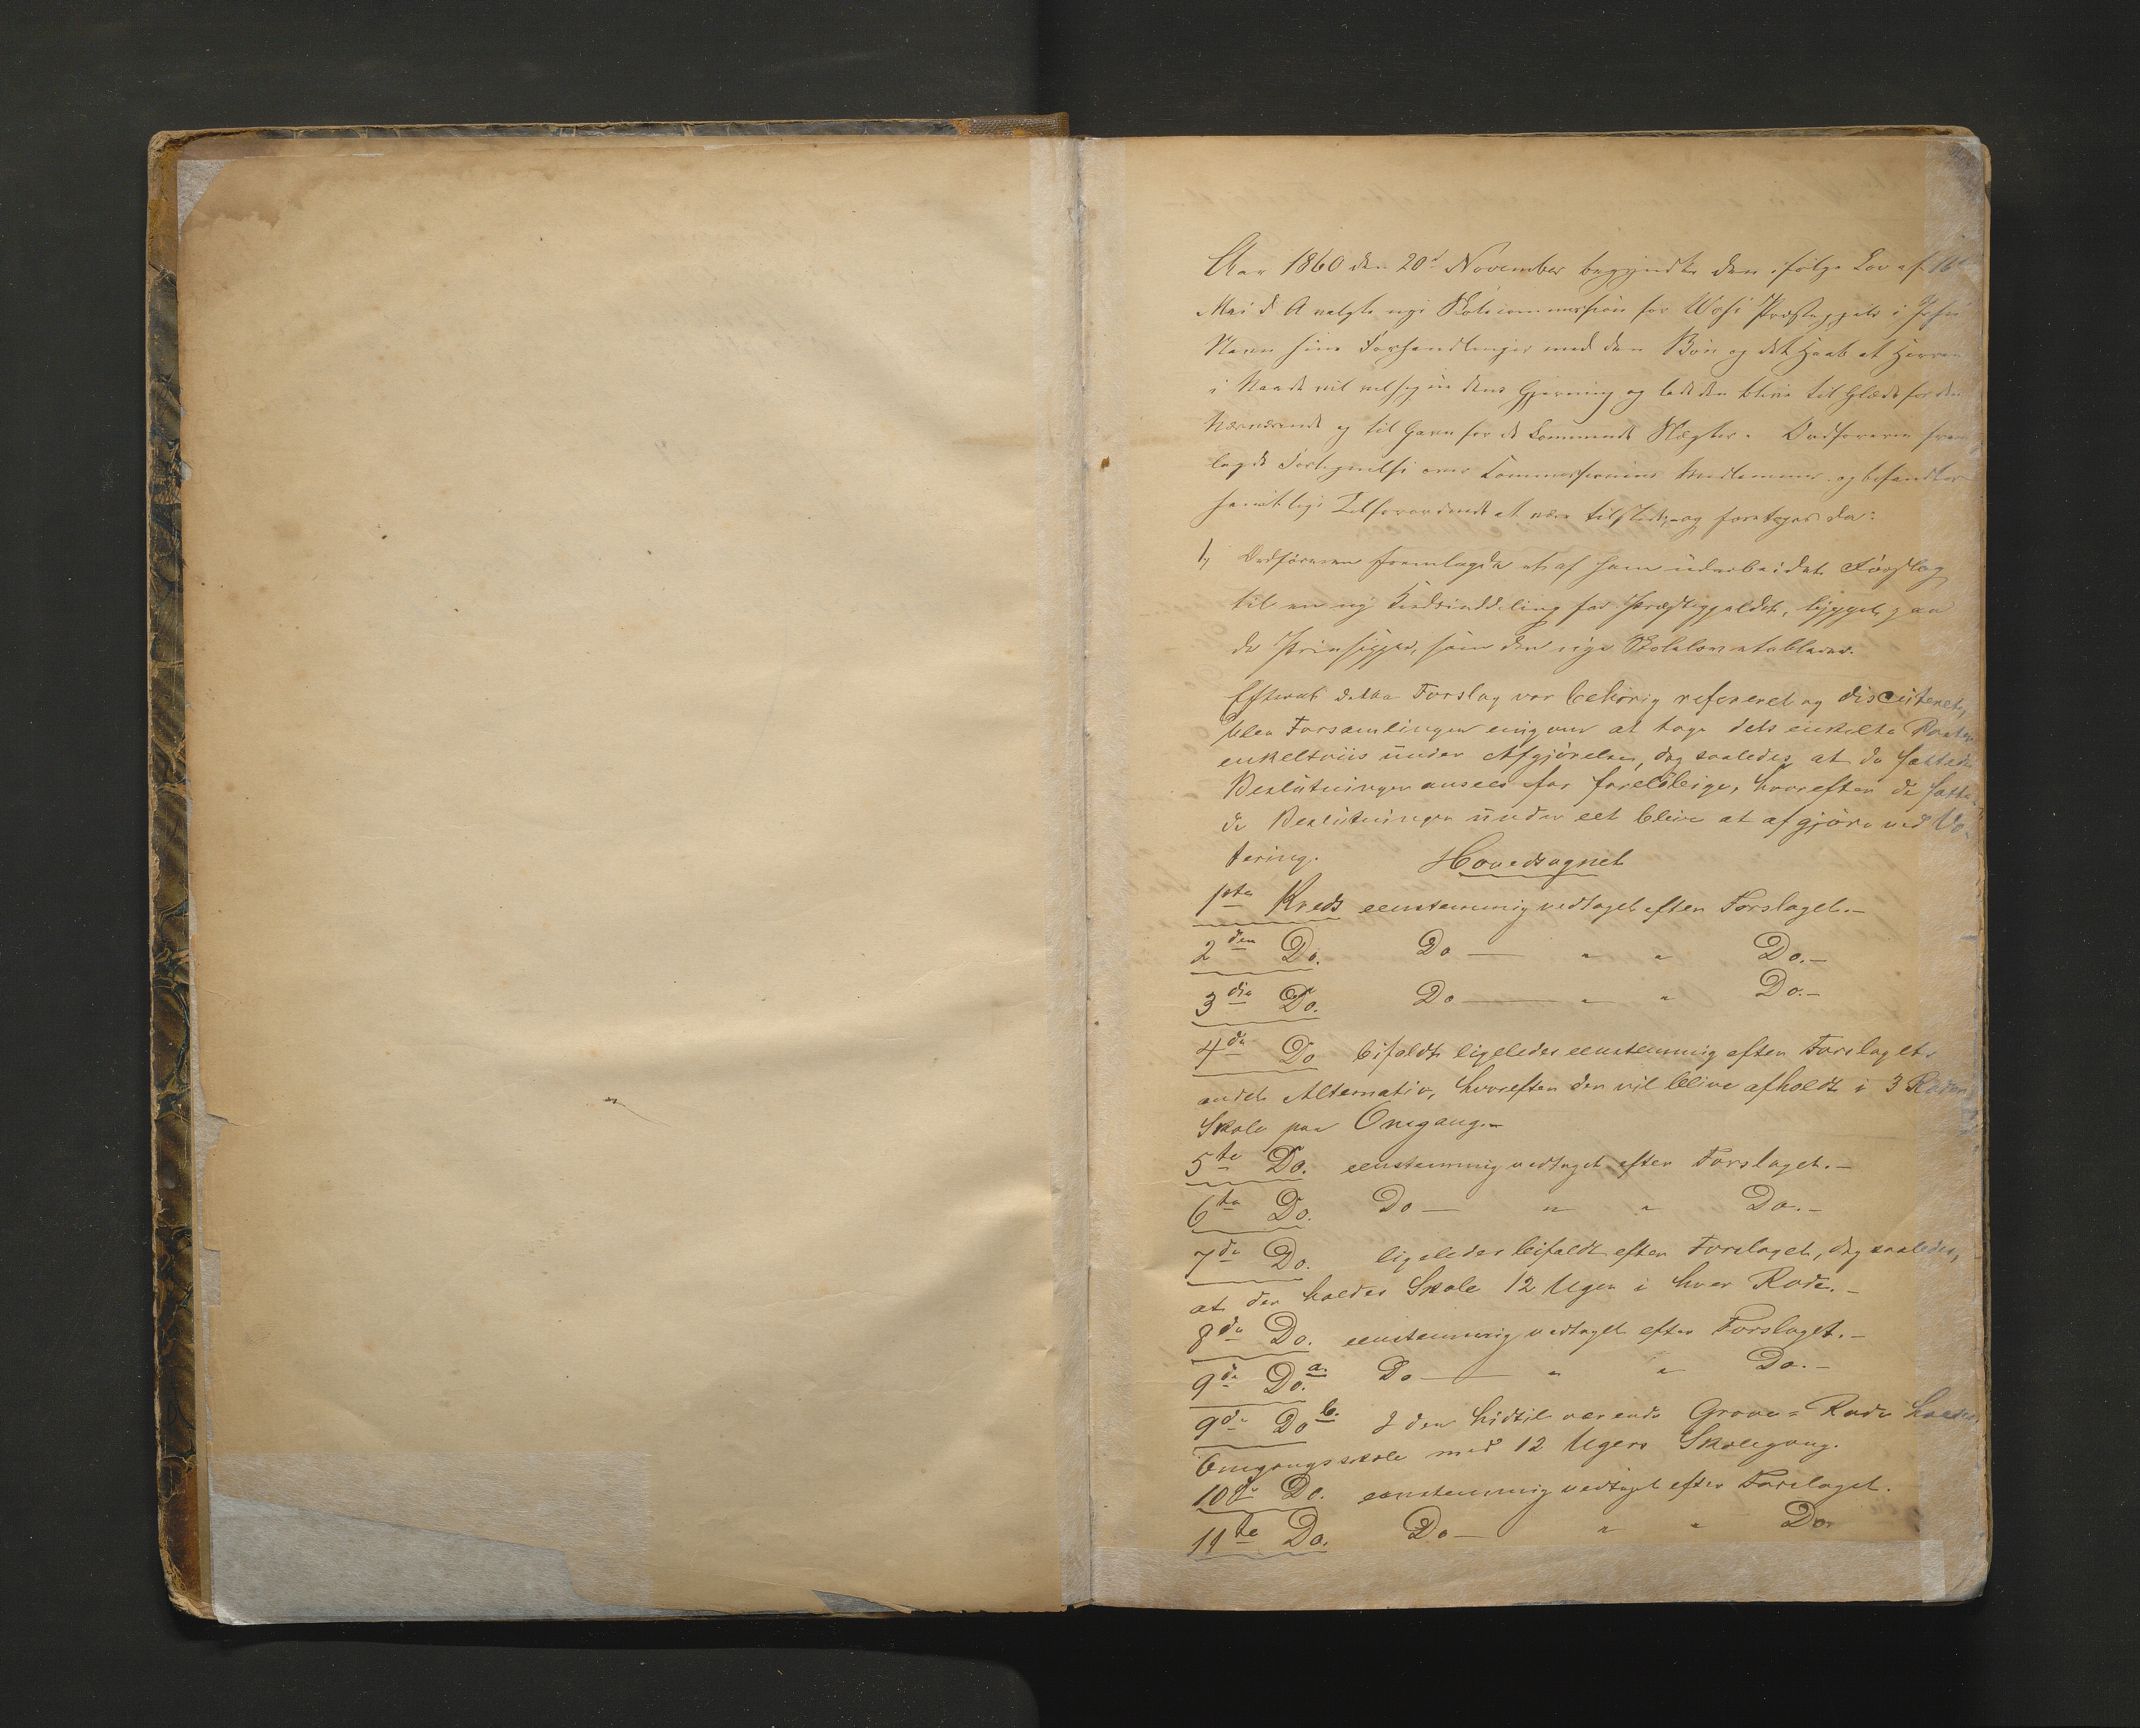 Aar 1860 den 20d November begyndte den ifølge Lov af 16de
Mai d. A valgte nye Skolecommission for Præstegjeld i Jesu
Navn sine Forhandlinger med den Bøn og det Haab at Herren
i Naade vil velsigne dens Gjerning og lade den blive til Glæde for den
Nærværende og til Gavn for de kommende Slægter. Ordføreren frem
lagde Fortegnelse over Commissionens Medlemmer og befandtes
samtlige at være tilstede, og foretoges da:
1, Ordføreren fremlagde et af ham udarbeidet Forslag
til en ny Kredsinddeling for Præstegjeldet, bygget paa
de Principper, som den nye Skolelov etablerer.
Efterat dette Forslag var behørig refereret og discuteret,
blev Forsamlingen enig om at tage dets enkelte Poster
enkeltviis under Afgjørelse, dog saaledes at de fattede
Beslutninger ansees for foreløbige, hvorefter de fatte-
de Beslutninger under eet blive at afgjøre ved Vo-
tering.
Hovedsognet
1ste Kreds eenstemmig vedtaget efter Forslaget.-
2den Do. Do — " " Do.-
3die Do. Do — " " Do.-
4de Do bifaldt ligeledes eenstemmig efter Forslagets
andet Alternativ, hvorefter der vil blive afholdt i 3 Roder
Skole paa Omgang.-
5te Do. eenstemmig vedtaget efter Forslaget.-
6te Do. Do — " " Do.-
7de Do. ligeledes bifaldt efter Forslaget, dog saaledes,
at der holdes Skole 12 Uger i hver Rode.-
8de Do. eenstemmig vedtaget efter Forslaget.-
9de Do. a. Do — " " Do.-
9de Do b. I den hidtil værende Rode holdes
Omgangsskole med 12 Ugers Skolegang.
10de Do. eenstemmig vedtaget efter Forslaget.
11te Do. Do — " " Do